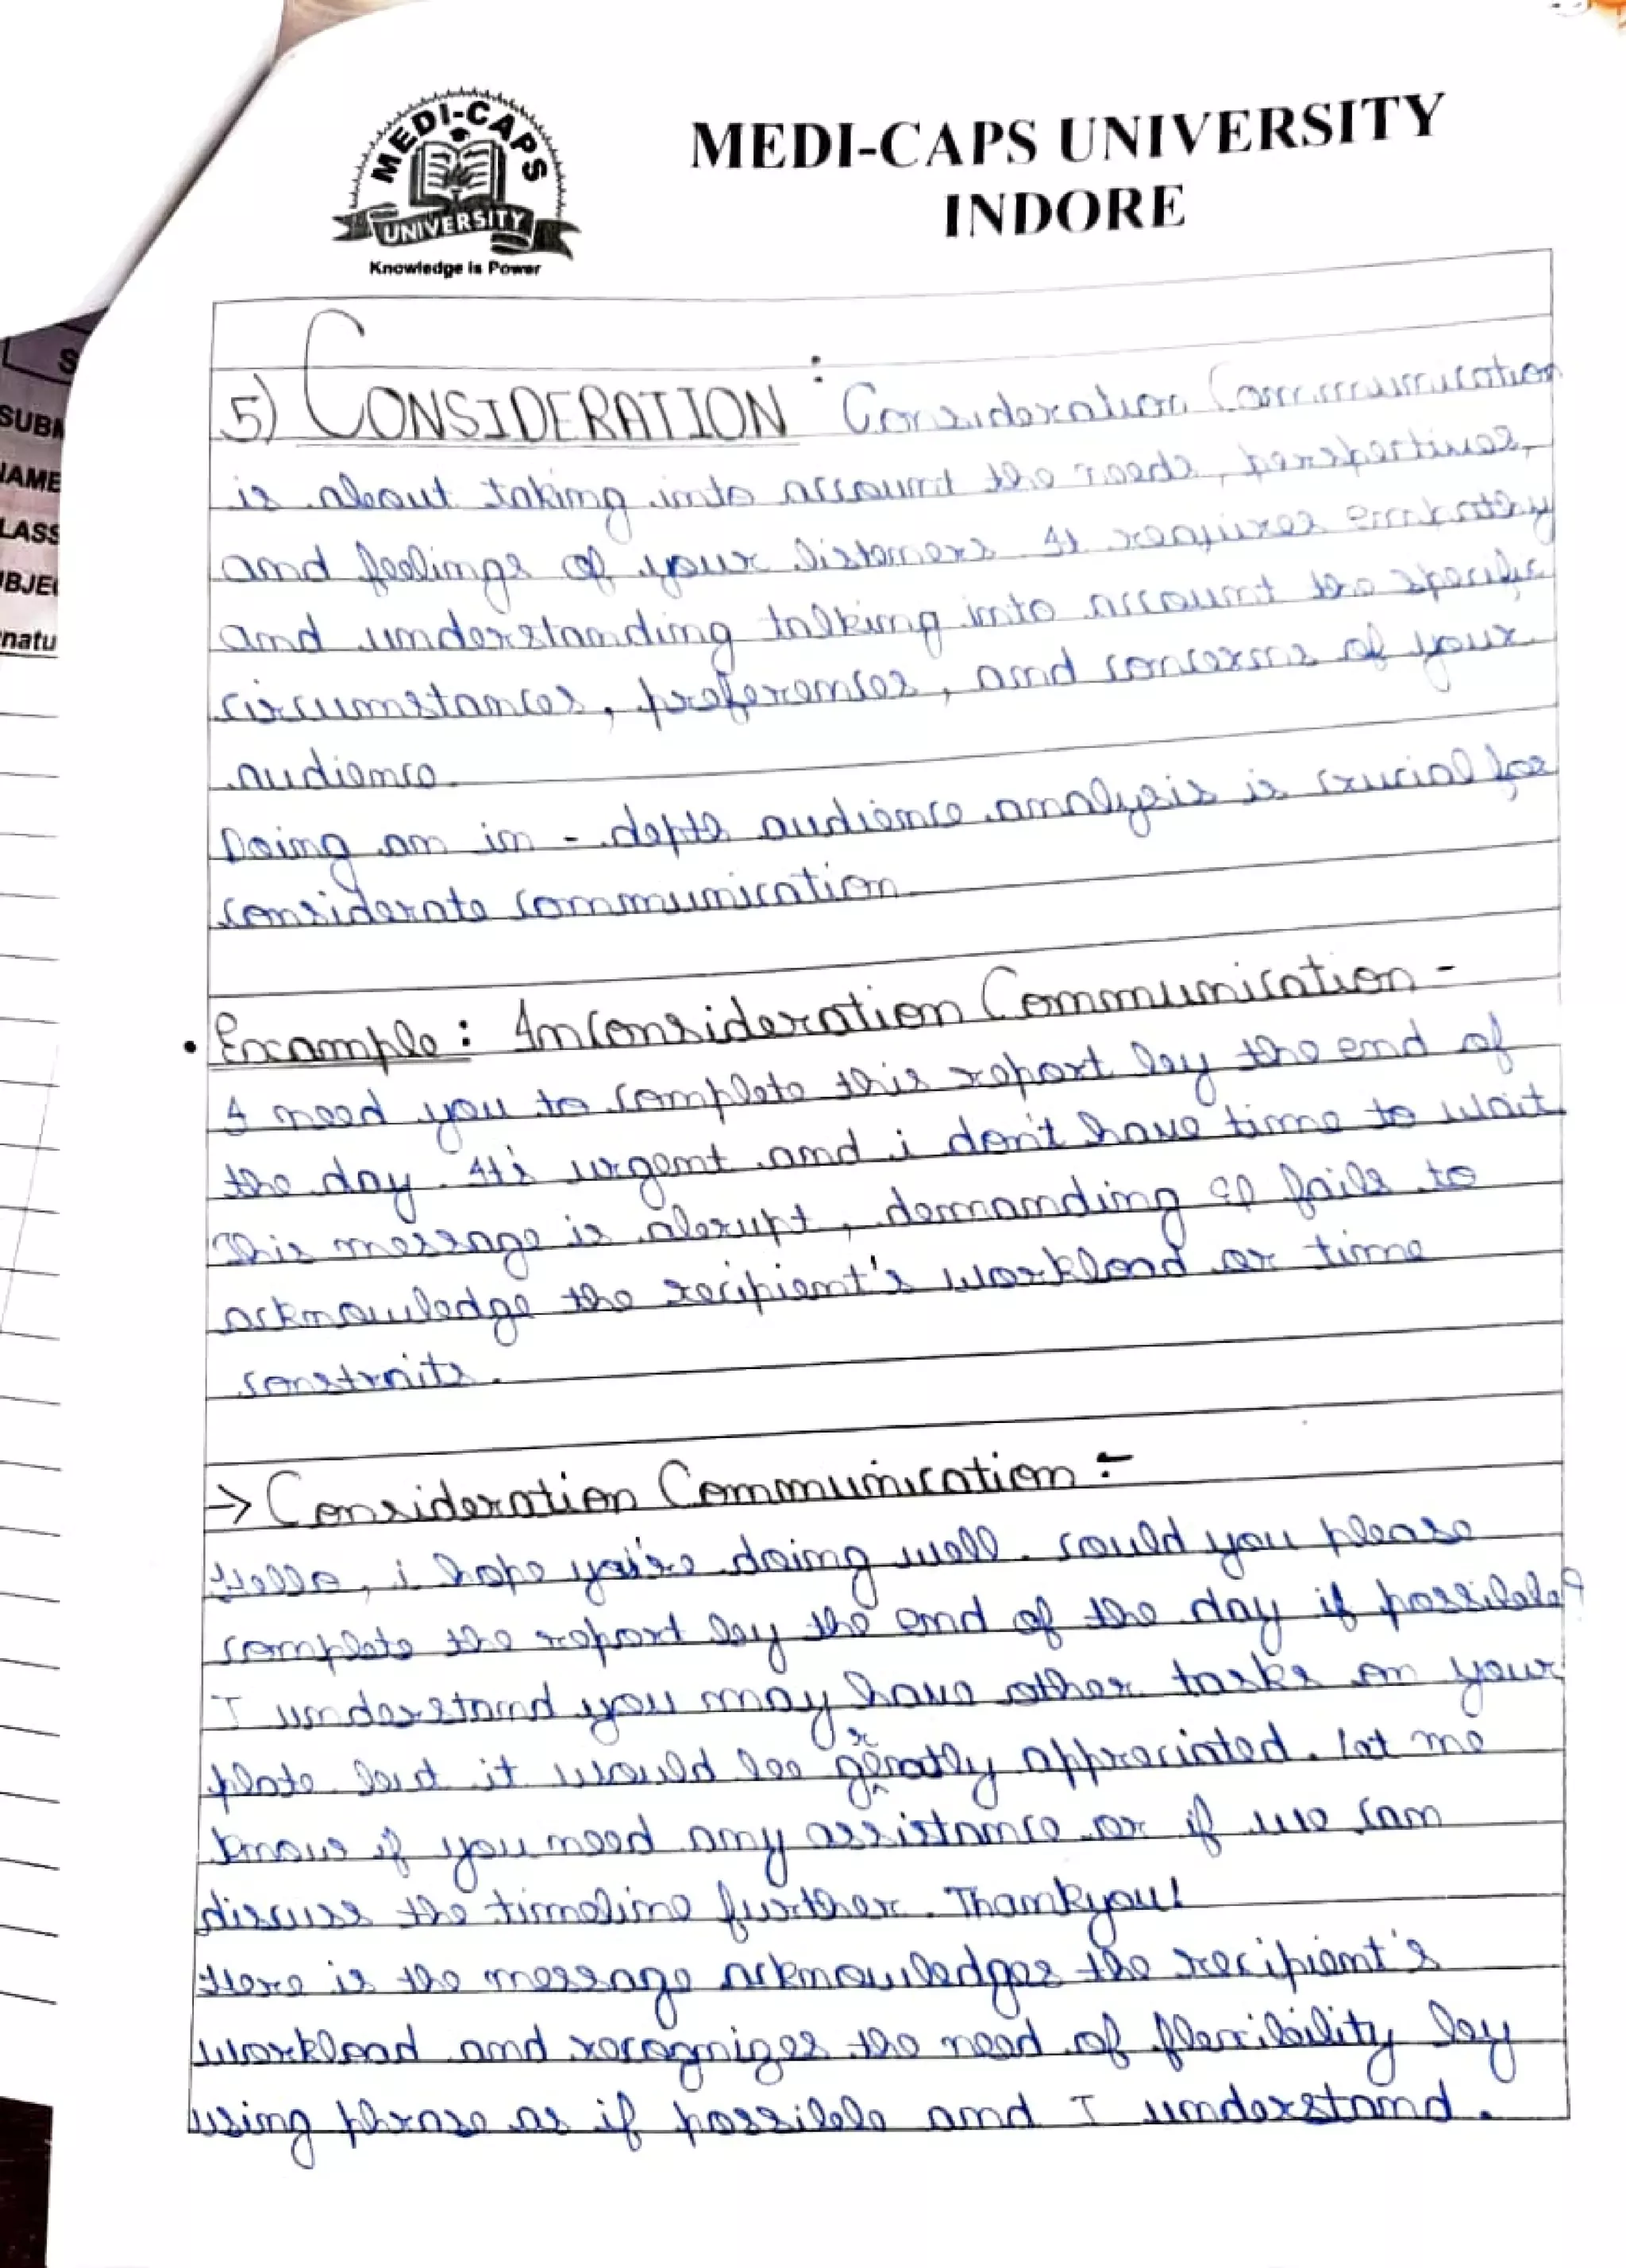 MEDI-CAPS
UNIVERSITY
Knowledge is Power
MEDI-CAPS UNIVERSITY
INDORE
S
SUBM
NAME
LASS
BJE
natu
5) CONSIDERATION : Consideration Communication
is about taking into account the needs, perspectives,
and feelings of your listeners. It requires empathy
and understanding talking into account the specific
circumstances, preferences, and concerns of your
audience.
Doing an in - depth audience analysis is crucial for
considerate communication
• Example : Inconsideration Communication -
I need you to complete this report by the end of
the day. It's urgent and i don't have time to wait
This message is abrupt, demanding & fails to
acknowledge the recipient's workload or time
constraits.
→ Consideration Communication :-
Hello, i hope you're doing well. could you please
complete the report by the end of the day if possible?
I understand you may have other tasks on your
plate but it would be greatly appreciated. let me
know if you need any assistance or if we can
discuss the timeline further. Thankyou!
Here is the message acknowledges the recipient's
workload and recognizes the need of flexibility by
using phrase as if possible and I understand.